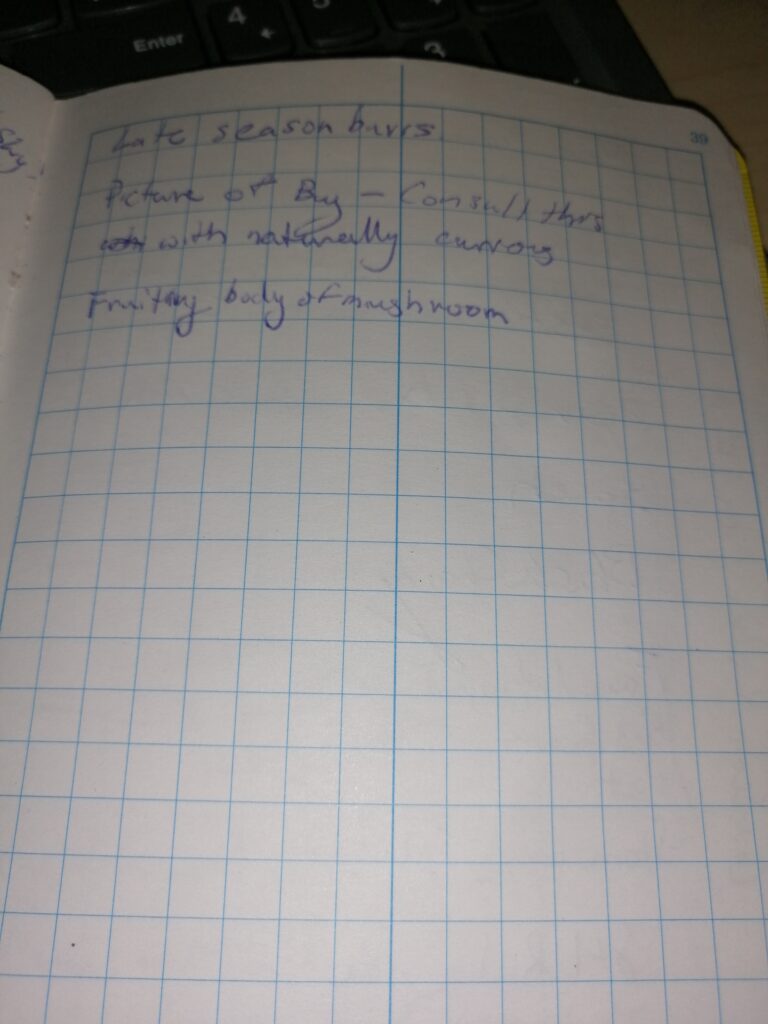 Enter
4
5
3
39
Late season burrs
Picture of Bug – Consult this
with naturally curious
Fruiting body of mushroom